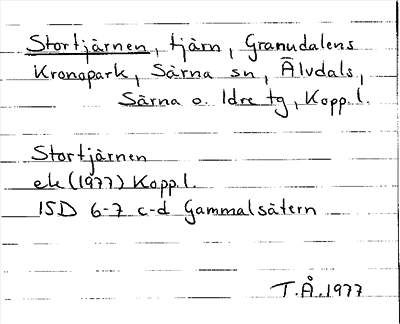 Stortjärnen, tjärn, Granudalens
Kronopark, Särna sn, Älvdals,
Särna o. Idre tg, Kopp.l.
Stortjärnen
ek (1977) Kopp.l.
15D 6-7 c-d Gammalsätern
T.Å. 1977